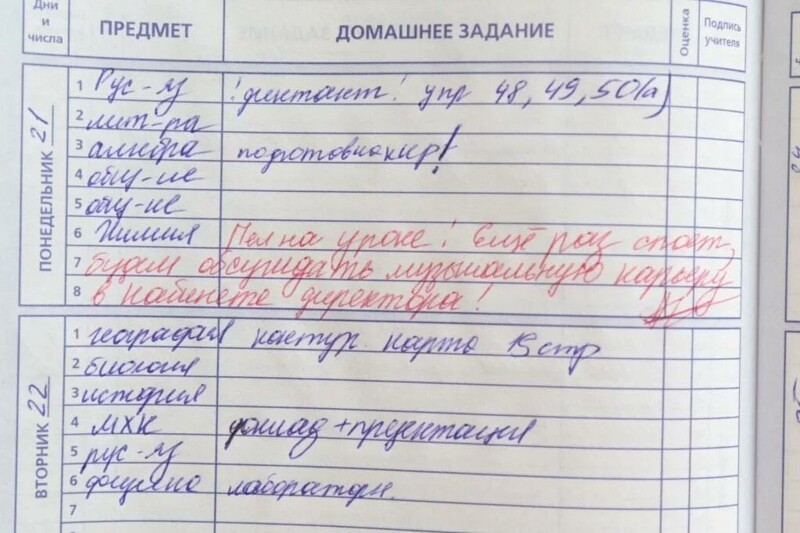 Дни и числа
ПРЕДМЕТ
ДОМАШНЕЕ ЗАДАНИЕ
Оценка
Подпись учителя
ПОНЕДЕЛЬНИК 21
1 Рус-яз !диктант! упр 48, 49, 50(а)
2 лит-ра
3 алгебра подготовка к кр!
4 общ-ие
5 общ-ие
6 Химия Пел на уроке! Ещё раз споет,
7 будем обсуждать музыкальную карьеру
8 в кабинете директора!
ВТОРНИК 22
1 география контур. карта 13 стр
2 биология
3 история
4 МХК доклад + презентация
5 рус-яз
6 физика лаборатори.
7